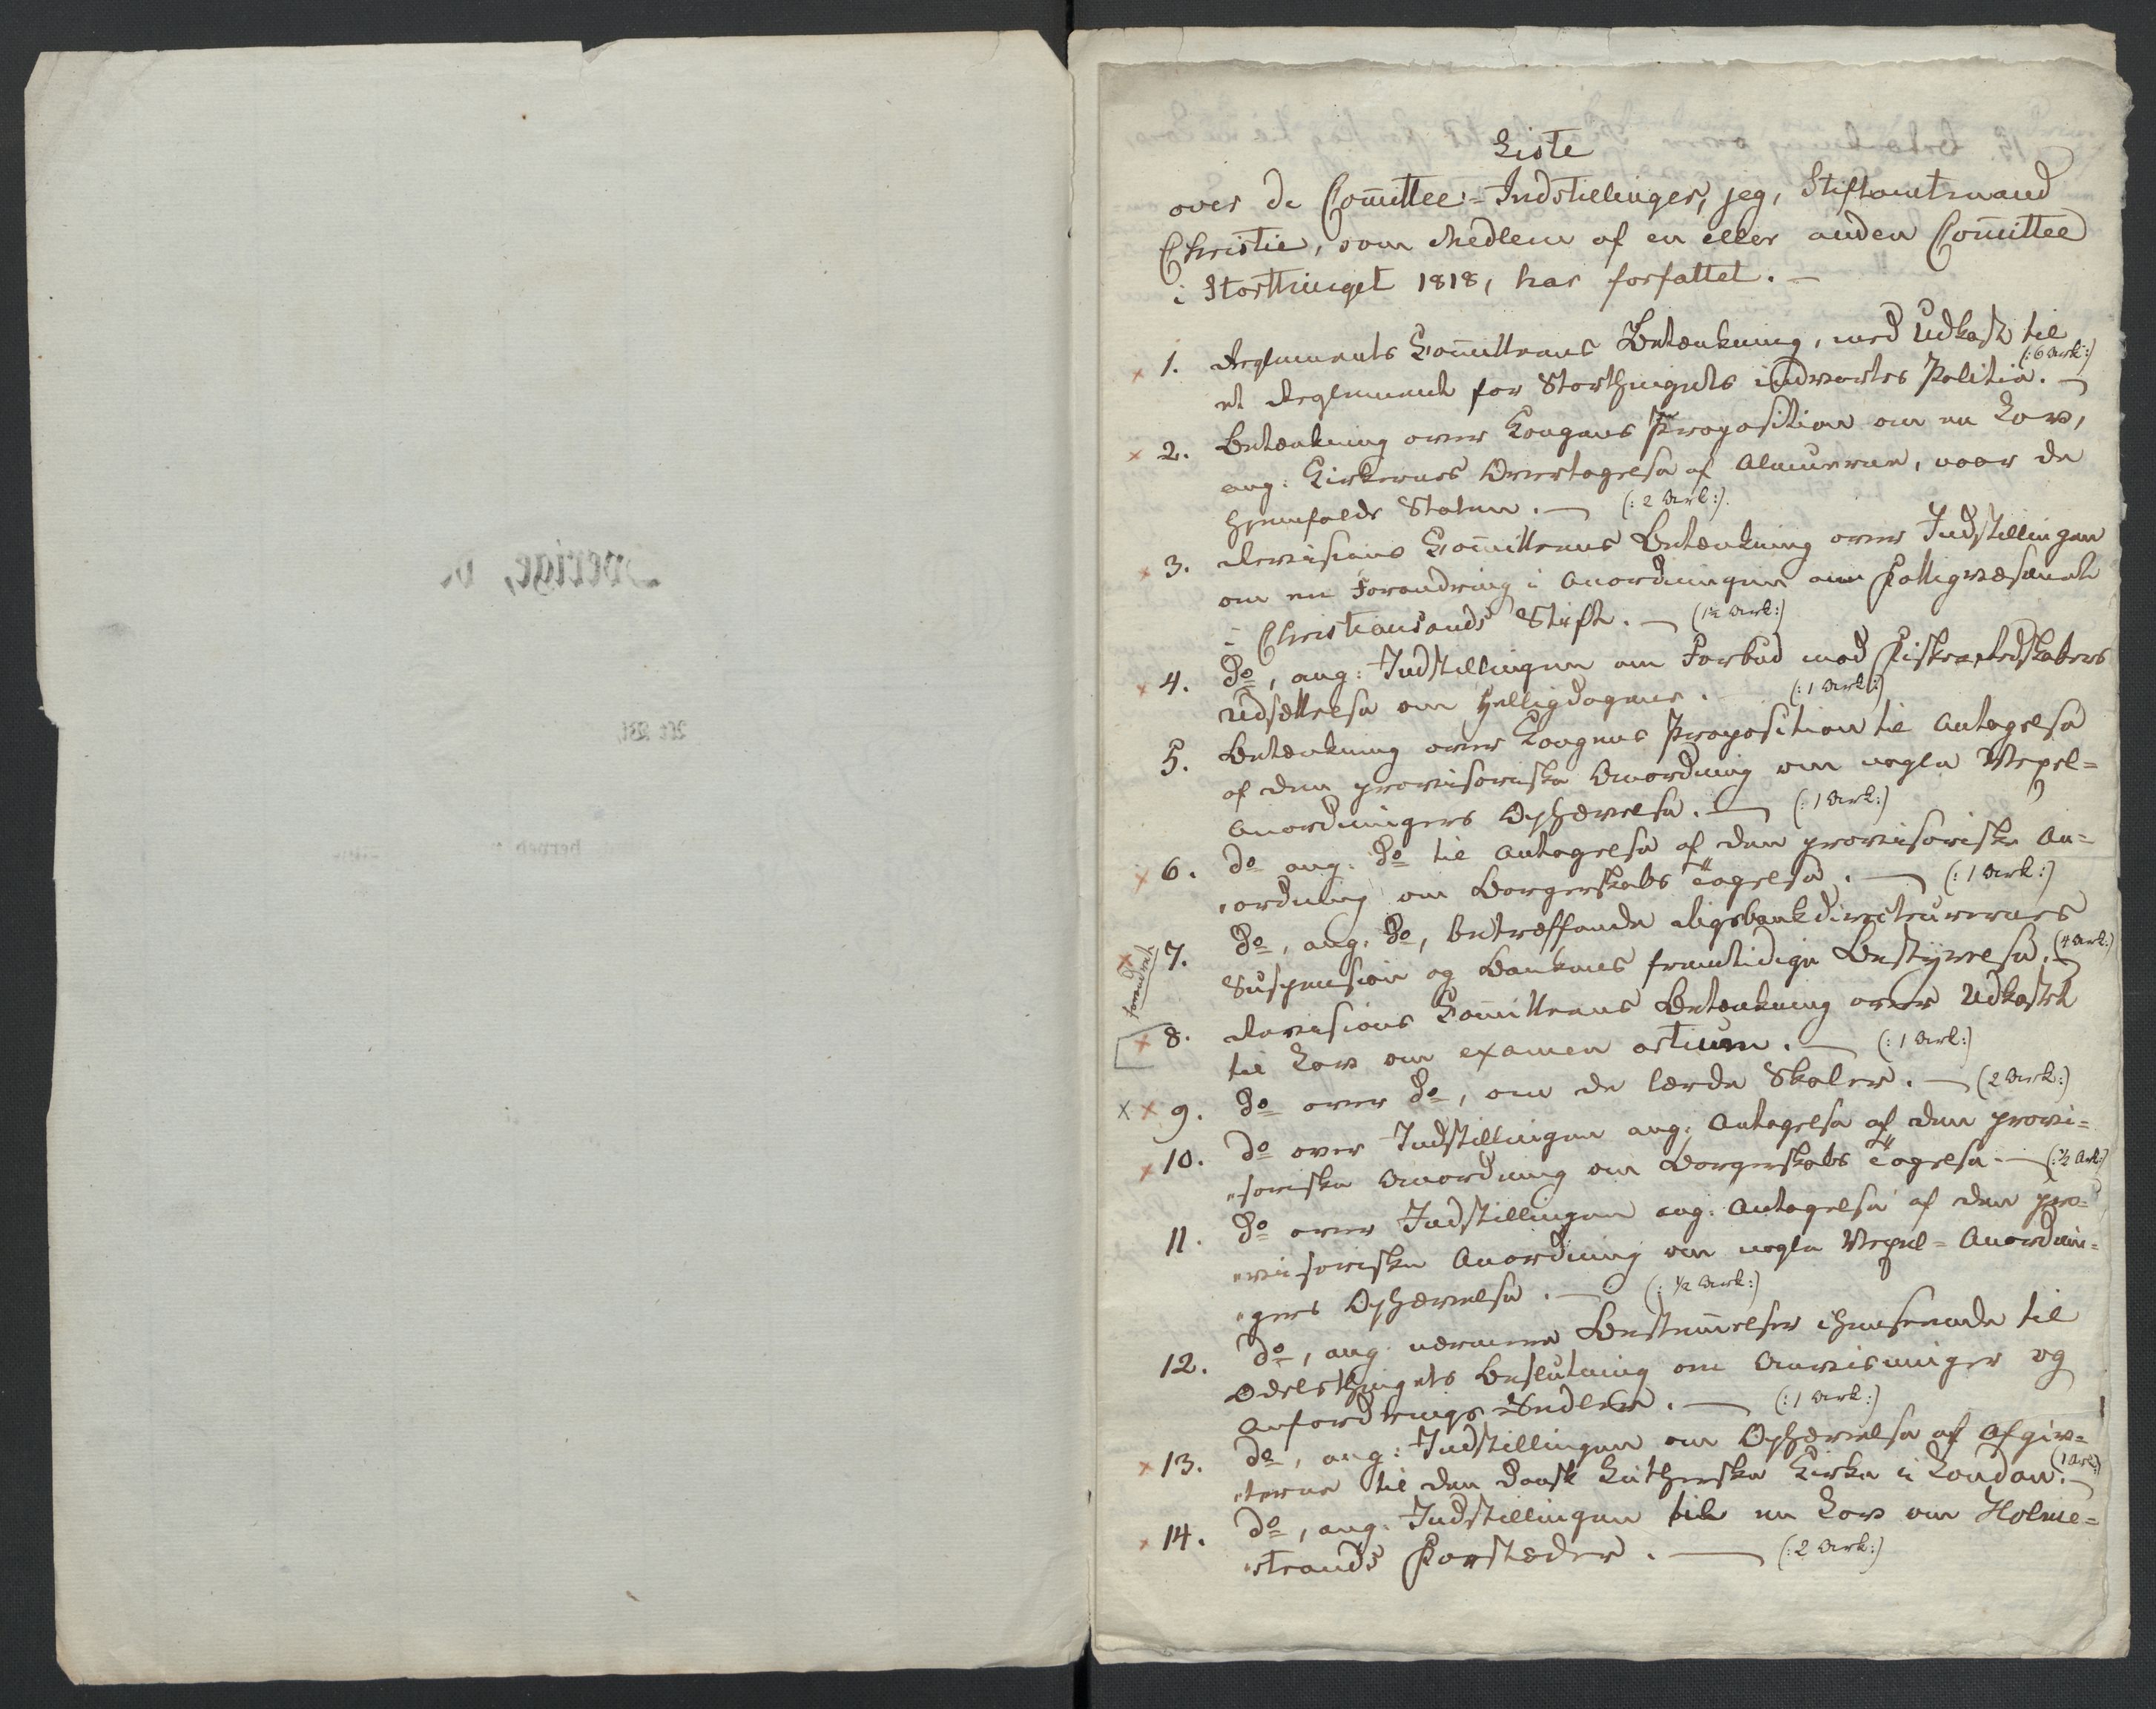 Liste
over de Com̅ittee-Indstillinger, jeg, Stiftamtmand
Christie, som Medlem af en eller anden Com̅ittee
i Storthinget 1818, har forfattet. —
1. Reglements Com̅itteens Betænkning, med Udkast til
et Reglement for Storthingets indvortes Politie. — (: 6 Ark :)
2. Betænkning over Kongens Proposition om en Lov,
ang: Kirkernes Overtagelse af Almuerne, naar de
hjemfalde Staten. — (: 2 Ark :).
3. Revisions Com̅itteens Betænkning over Indstillingen
om en Forandring i Anordningen om Fattigvæsenet
i Christiansands Stift. — (1½ Ark :)
4. Do, ang: Indstillingen om Forbud mod Fiskeredskabers
Udsættelse om Helligdagene. (: 1 Ark :)
5. Betænkning over Kongens Proposition til Antagelse
af den provisoriske Anordning om nogle Vexel=
Anordningers Ophævelse. — (: 1 Ark :)
6. do ang: do til Antagelse af den provisoriske An=
„ordning om Borgerskabs Tagelse. — (: 1 Ark :)
7. Do, ang: Do, betræffende Rigsbankdirecteurernes
Suspension og Bankens fremtidige Bestyrelse. — (4 Ark :)
forandret
8. Revisions Com̅itteens Betænkning over Udkastet
til Lov om examen artium. — (: 1 Ark :)
9. Do over do, om de lærde Skoler. — (2 Ark :)
10. do over Indstillingen ang: Antagelse af den provi=
„soriske Anordning om Borgerskabs Tagelse — (: ½ Ark :)
11. Do over Indstillingen ang: Antagelse af den pro=
„visoriske Anordning om nogle Vexel=Anordnin=
„gers Ophævelse. — (: ½ Ark :)
12. do, ang: nærmere Bestem̅elser ihenseende til
Odelsthingets Beslutning om Anviisninger og
Anfordrings=Sedler. — (: 1 Ark :)
13. do, ang: Indstillingen om Ophævelse af Afgiv=
„terne til den dansk Lutherske Kirke i London. — (1 Ark :)
14. do, ang: Indstillingen til en Lov om Holme=
„strands Forstæder. — (: 2 Ark :)